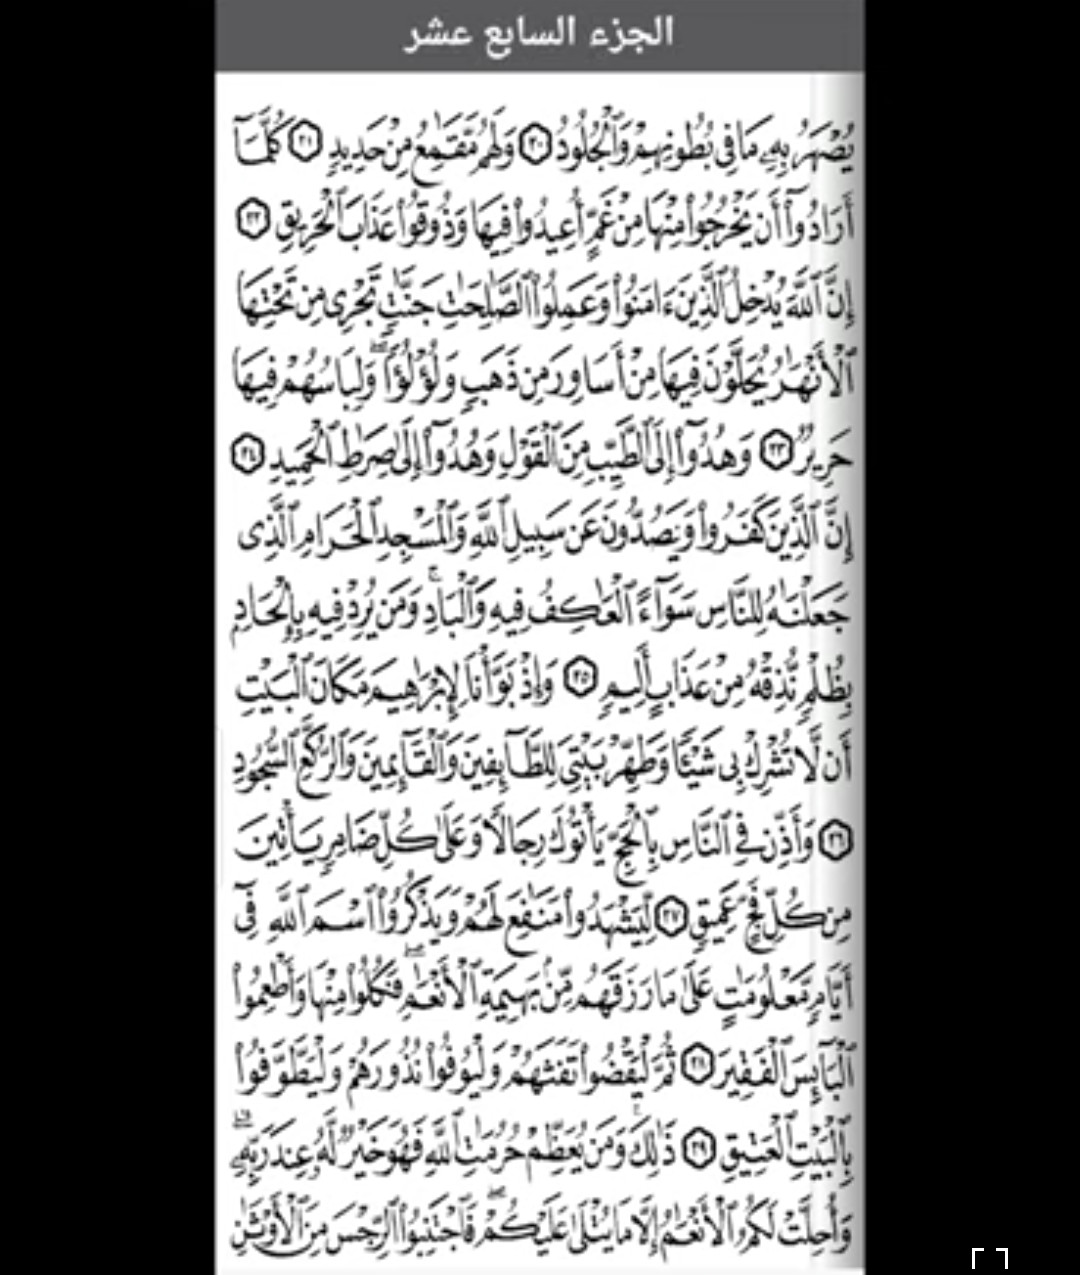 الجزء السابع عشر
يُصْهَرُ بِهِۦ مَا فِى بُطُونِهِمْ وَٱلْجُلُودُ ٢٠ وَلَهُم مَّقَٰمِعُ مِنْ حَدِيدٍ ٢١ كُلَّمَآ
أَرَادُوٓا۟ أَن يَخْرُجُوا۟ مِنْهَا مِنْ غَمٍّ أُعِيدُوا۟ فِيهَا وَذُوقُوا۟ عَذَابَ ٱلْحَرِيقِ ٢٢
إِنَّ ٱللَّهَ يُدْخِلُ ٱلَّذِينَ ءَامَنُوا۟ وَعَمِلُوا۟ ٱلصَّٰلِحَٰتِ جَنَّٰتٍ تَجْرِى مِن تَحْتِهَا
ٱلْأَنْهَٰرُ يُحَلَّوْنَ فِيهَا مِنْ أَسَاوِرَ مِن ذَهَبٍ وَلُؤْلُؤًا ۖ وَلِبَاسُهُمْ فِيهَا
حَرِيرٌ ٢٣ وَهُدُوٓا۟ إِلَى ٱلطَّيِّبِ مِنَ ٱلْقَوْلِ وَهُدُوٓا۟ إِلَىٰ صِرَٰطِ ٱلْحَمِيدِ ٢٤
إِنَّ ٱلَّذِينَ كَفَرُوا۟ وَيَصُدُّونَ عَن سَبِيلِ ٱللَّهِ وَٱلْمَسْجِدِ ٱلْحَرَامِ ٱلَّذِى
جَعَلْنَٰهُ لِلنَّاسِ سَوَآءً ٱلْعَٰكِفُ فِيهِ وَٱلْبَادِ ۚ وَمَن يُرِدْ فِيهِ بِإِلْحَادٍۭ
بِظُلْمٍ نُّذِقْهُ مِنْ عَذَابٍ أَلِيمٍ ٢٥ وَإِذْ بَوَّأْنَا لِإِبْرَٰهِيمَ مَكَانَ ٱلْبَيْتِ
أَن لَّا تُشْرِكْ بِى شَيْـًٔا وَطَهِّرْ بَيْتِىَ لِلطَّآئِفِينَ وَٱلْقَآئِمِينَ وَٱلرُّكَّعِ ٱلسُّجُودِ
٢٦ وَأَذِّن فِى ٱلنَّاسِ بِٱلْحَجِّ يَأْتُوكَ رِجَالًا وَعَلَىٰ كُلِّ ضَامِرٍ يَأْتِينَ
مِن كُلِّ فَجٍّ عَمِيقٍ ٢٧ لِّيَشْهَدُوا۟ مَنَٰفِعَ لَهُمْ وَيَذْكُرُوا۟ ٱسْمَ ٱللَّهِ فِىٓ
أَيَّامٍ مَّعْلُومَٰتٍ عَلَىٰ مَا رَزَقَهُم مِّنۢ بَهِيمَةِ ٱلْأَنْعَٰمِ ۖ فَكُلُوا۟ مِنْهَا وَأَطْعِمُوا۟
ٱلْبَآئِسَ ٱلْفَقِيرَ ٢٨ ثُمَّ لْيَقْضُوا۟ تَفَثَهُمْ وَلْيُوفُوا۟ نُذُورَهُمْ وَلْيَطَّوَّفُوا۟
بِٱلْبَيْتِ ٱلْعَتِيقِ ٢٩ ذَٰلِكَ ۚ وَمَن يُعَظِّمْ حُرُمَٰتِ ٱللَّهِ فَهُوَ خَيْرٌ لَّهُۥ عِندَ رَبِّهِۦ ۗ
وَأُحِلَّتْ لَكُمُ ٱلْأَنْعَٰمُ إِلَّا مَا يُتْلَىٰ عَلَيْكُمْ ۖ فَٱجْتَنِبُوا۟ ٱلرِّجْسَ مِنَ ٱلْأَوْثَٰنِ